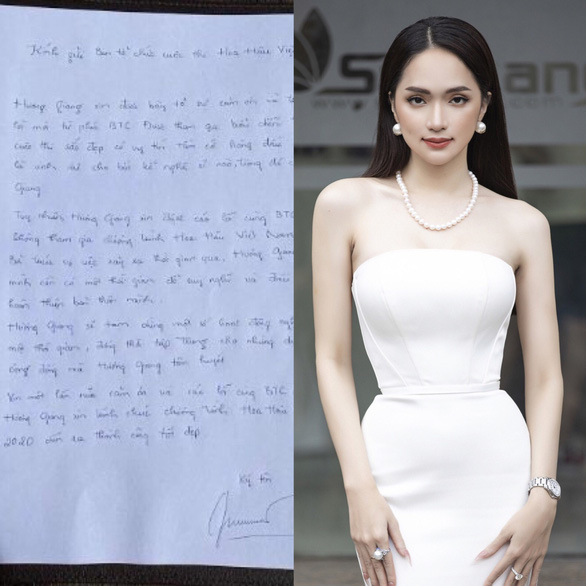 Kính gửi Ban tổ chức cuộc thi Hoa Hậu Việt
Hương Giang xin được bày tỏ sự cảm ơn và
lời mời từ phía BTC. Được tham gia biểu diễn
cuộc thi sắc đẹp có uy tín tầm cỡ hàng đầu
là vinh dự cho bất kể nghệ sĩ nào, trong đó có
Giang
Tuy nhiên Hương Giang xin được cáo lỗi cùng BTC
không tham gia chương trình Hoa Hậu Việt Nam
vụ việc xảy ra thời gian qua, Hương Giang
mình cần có một thời gian để suy nghĩ và
hoàn thiện bản thân mình.
Hương Giang sẽ tạm dừng một số hoạt động
một thời gian, đồng thời tập trung cho những
cộng đồng mà Hương Giang tâm huyết
Xin một lần nữa cảm ơn và cáo lỗi cùng BTC
Hương Giang xin kính chúc chương trình Hoa Hậu
2020 diễn ra thành công tốt đẹp
Ký tên